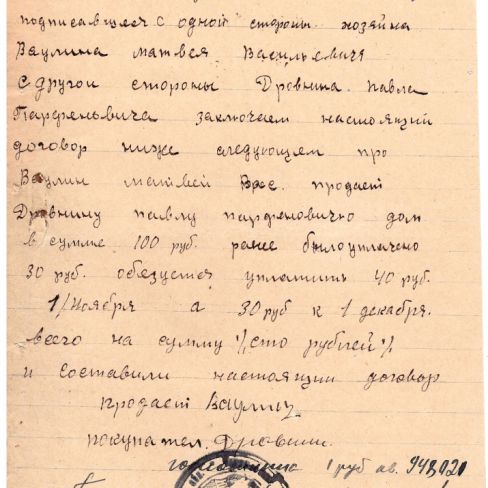 подписавшеся с одной стороны хозяйка
Ваулина матвея Васильевича
с другои стороны Дровнина павла
Парфеньвича заключаем настоящий
договор ниже следующем про
Ваулин матвей Вас. продает
Дровнину павлу парфеновичю дом
в сумме 100 руб. ранее было уплачено
30 руб. обезуется уплатить 40 руб.
1/Ноября а 30 руб к 1 декабря.
всего на сумму %сто рублей%
и составили настоящии договор
продает Ваулин
покупател. Дровнин.
1 руб кв. 948,020